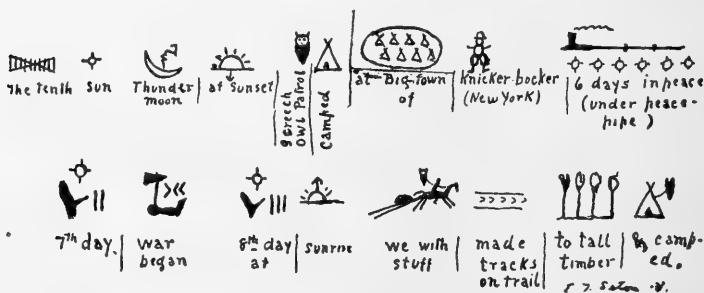 The Tenth Sun Thunder moon at Sunset Screech Owl Patrol Camped at Big-Town of Knicker-bocker (New York) 6 days in peace (under peace-pipe)
7th day. war began 8th day at sunrise we with stuff made tracks on trail to tall timber & camp-ed.
E. T. Seton